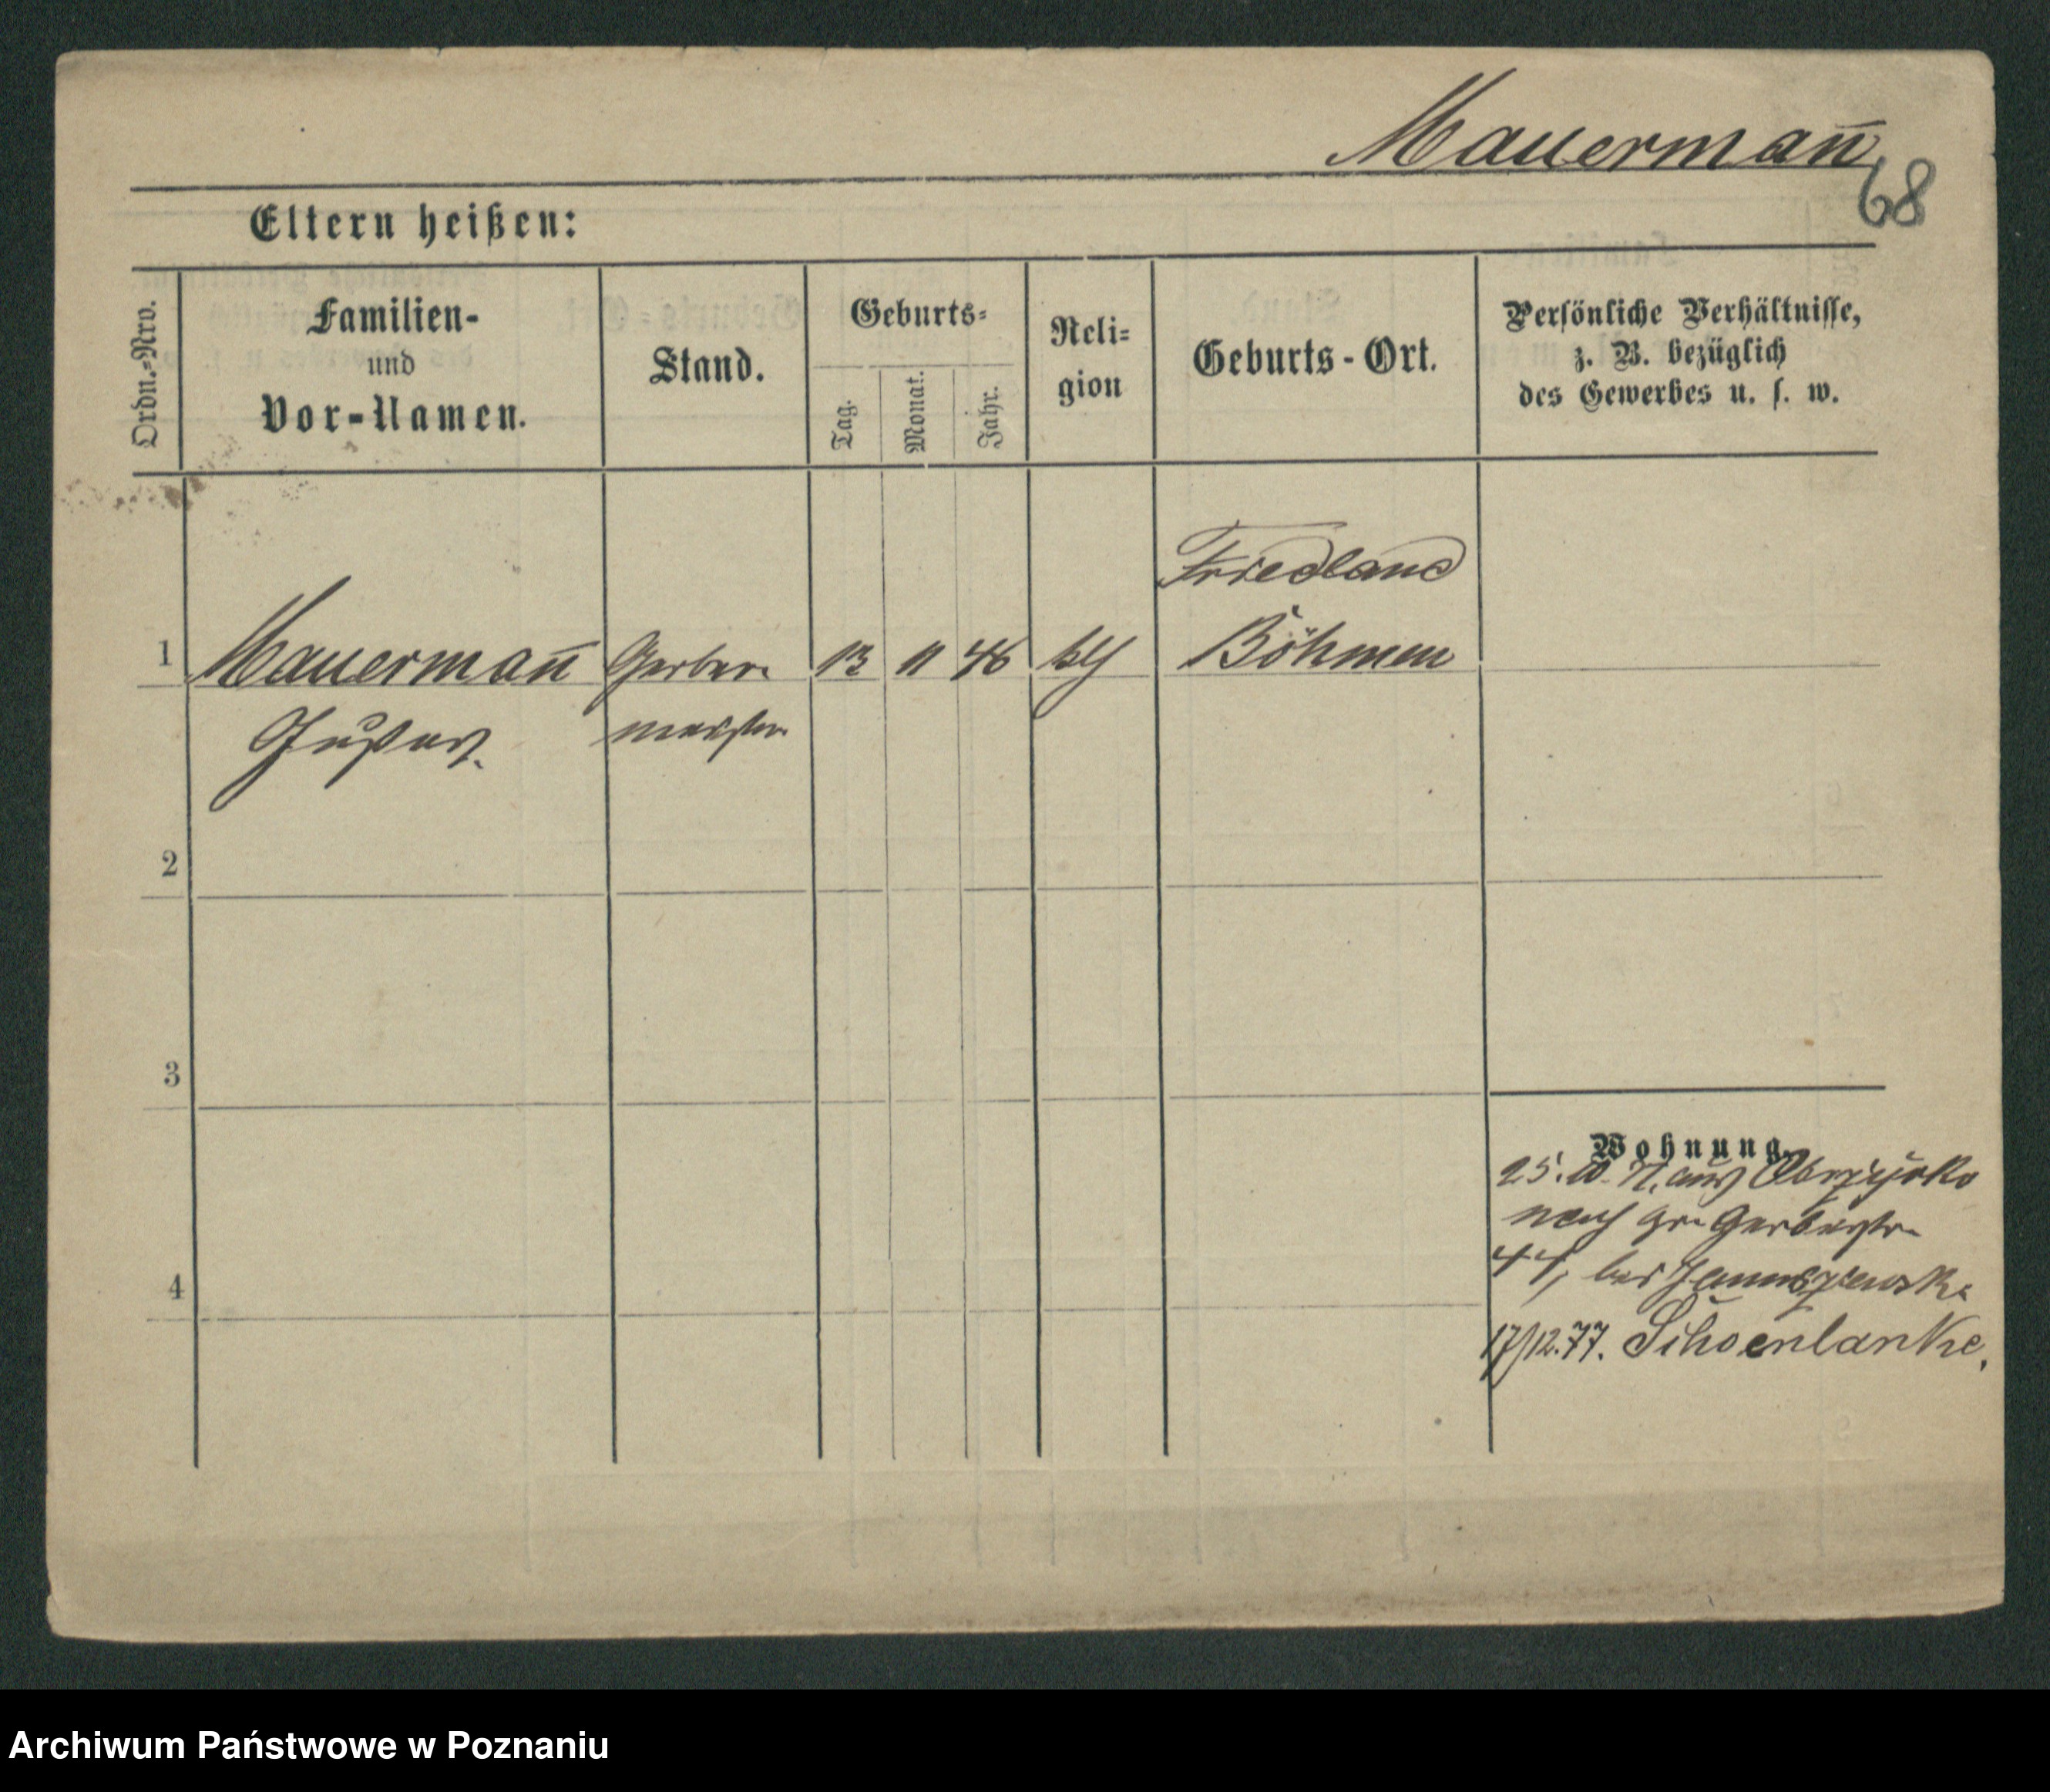 Mauermann̄
68
Eltern heißen:
Ordn.-Nro.
Familien-
und
Vor-Namen.
Stand.
Geburts-
Tag.
Monat.
Jahr.
Reli-
gion
Geburts-Ort.
Persönliche Verhältnisse,
z. B. bezüglich
des Gewerbes u. s. w.
Friedland
1 Mauerman̄ Gerber 13 11 46 Böhmen
Gustav. meister
2
3
4
Wohnung.
25. 10. 77. aus Obrzycko
nach gr. Gerberstr.
44, bei
17/12.77. Schoenlanke.
Archiwum Państwowe w Poznaniu